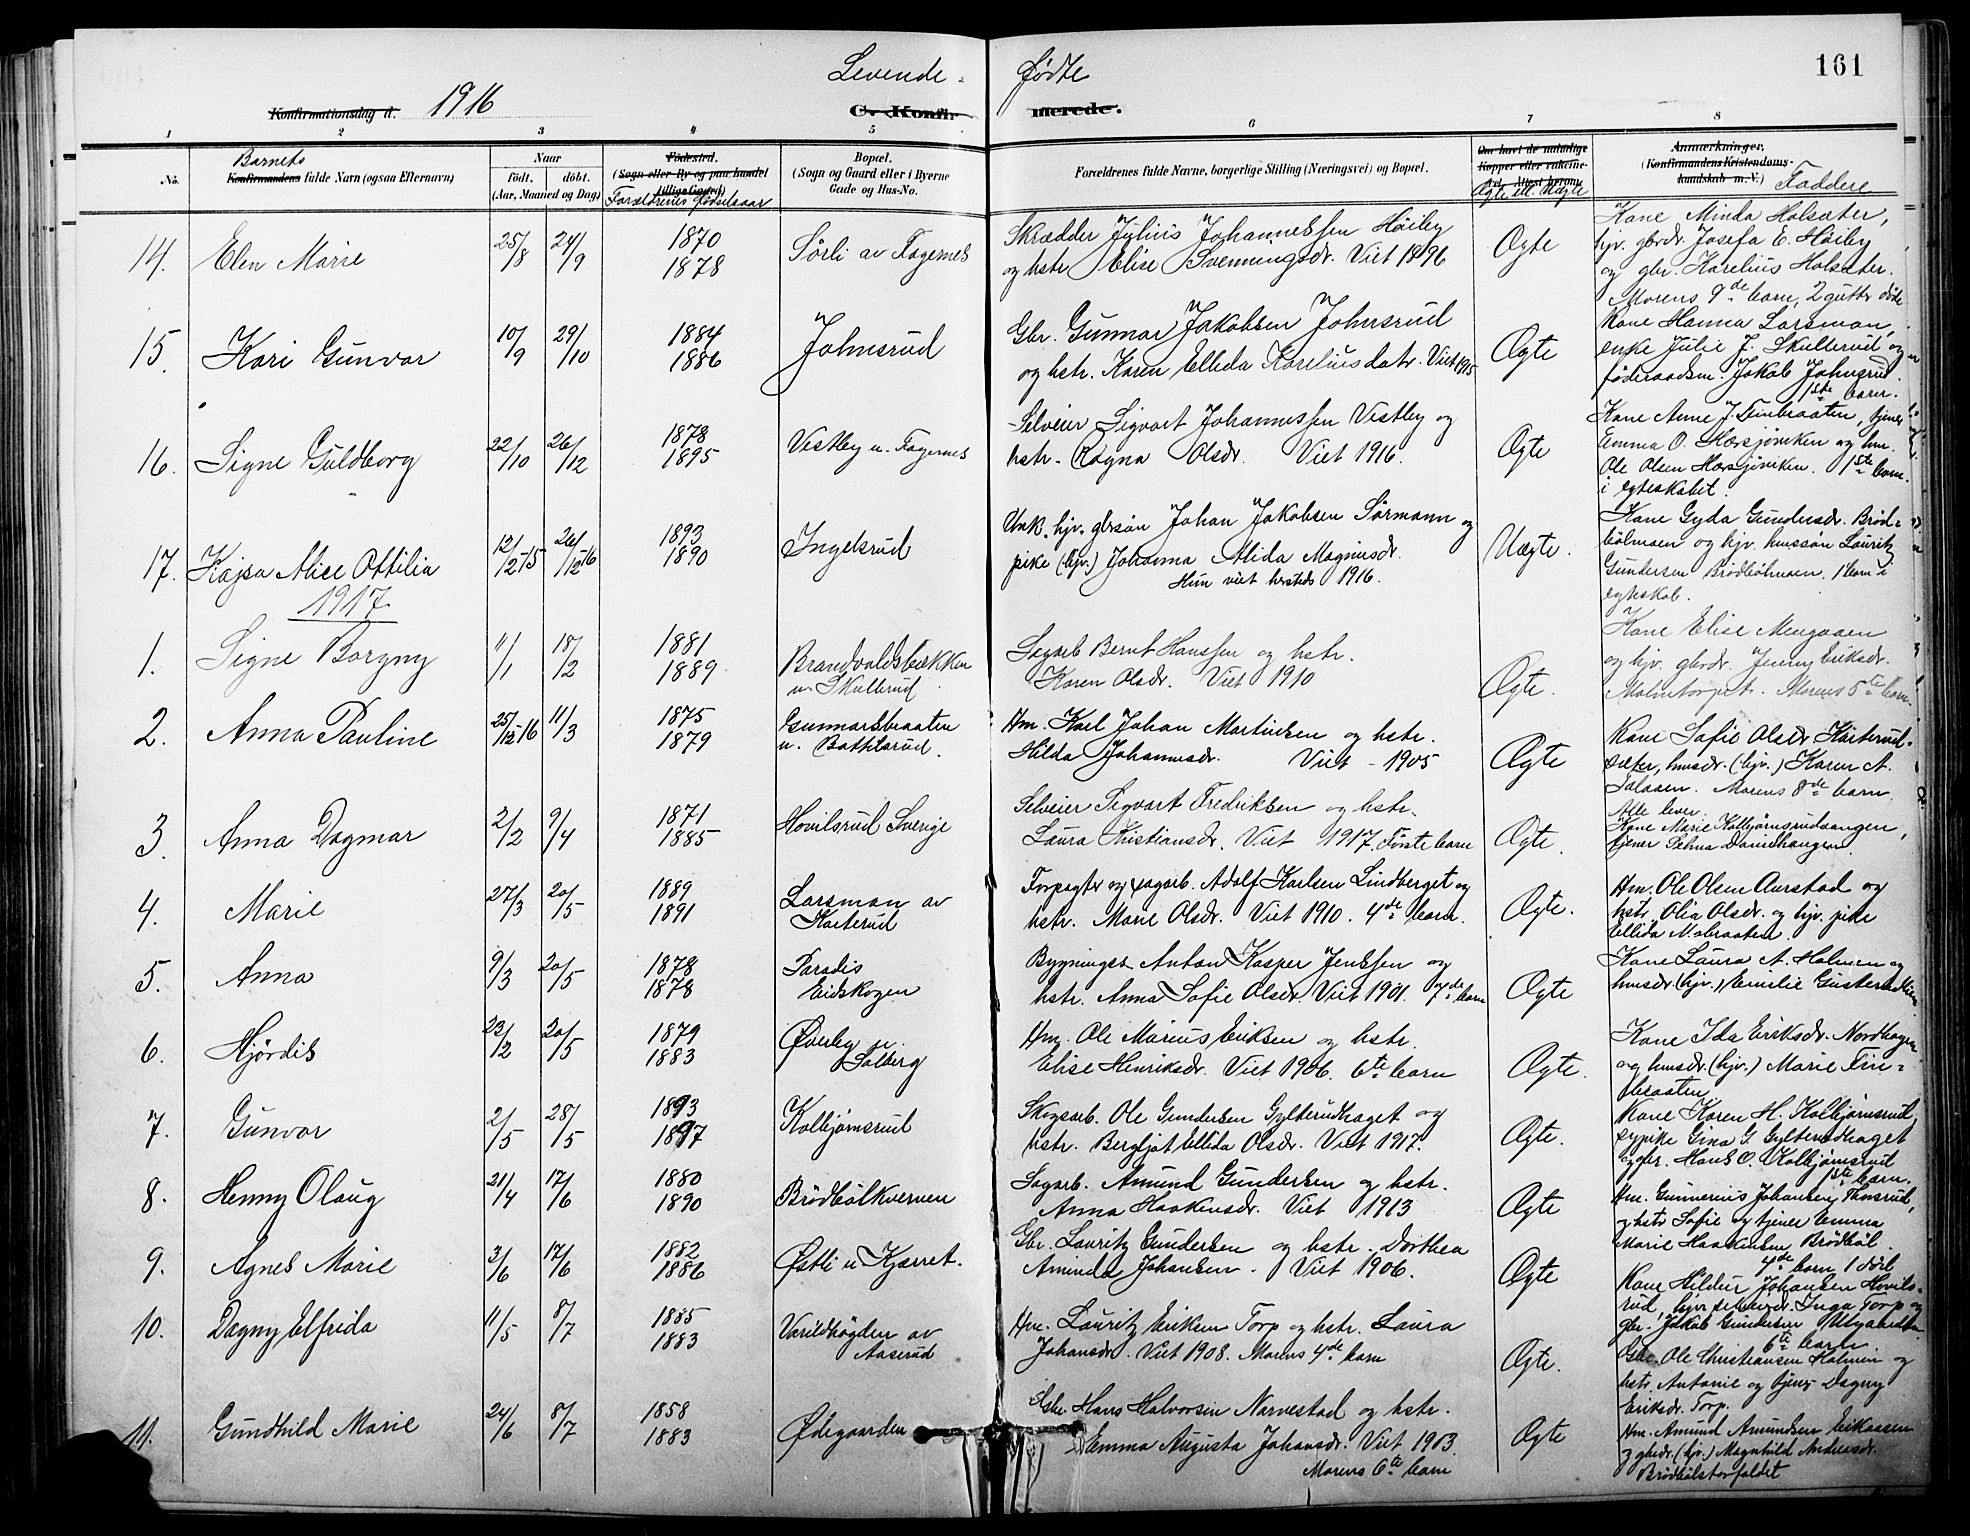 161
Levende Fødte
Konfirmationsdag d. 1916
C. Konfirmerede.
1 2 3 4 5 6 7 8
No. Barnets
Konfirmandens fulde Navn (ogsaa Efternavn)
Naar
født. døbt.
(Aar, Maaned og Dag)
Fødested.
(Sogn eller By og paa landet
tillige Gaard)
Forældrenes fødselsaar
Bopæl.
(Sogn og Gaard eller i Byerne
Gade og Hus-No.
Forældrenes fulde Navne, borgerlige Stilling (Næringsvei) og Bopæl.
Om havt de naturlige
Kopper eller vaksine-
ret. Attest herom.
Ægte ell. Uægte
Anmærkninger.
(Konfirmandens Kristendoms-
kundskab m. V.)
Faddere
14. Elen Marie 25/8 24/9 1870 1878 Sörli av Fagernes
Skrædder Julius Johannessen Höiby
og hstr Elise Svenningsdr. Viet 1896
Ægte
Kone Minda Holsæter,
hjv. gbrdr. Josefa E. Höiby
og gbr. Karelius Holsæter.
Morens 9de barn, 2 gutter döde
15. Kari Gunvor 10/9 29/10 1884 1886 Johnsrud
Gbr. Gunnar Jakobsen Johnsrud
og hstr. Karen Ellida Kareliusdatr. Viet 1915
Ægte
Kone Hanna Larsmon,
enke Julie J. Skullerud og
föderaadsm. Jakob Johnsrud.
1ste barn.
16. Signe Guldborg 22/10 26/12 1878 1895 Vestby u. Fagernes
Selveier Sigvart Johannessen Vestby og
hstr. Ragna Olsdr. Viet 1916.
Ægte
Kone Anne J. Finbraaten, tjener
Emma O. Hærsjöviken og hm.
Ole Olsen Hærsjöviken. 1ste barn.
i egteskabet.
17. Kajsa Alise Ottilia 12/2-15 26/12-16 1893 1890 Ingelsrud
Unk. hjv. gbrsön Johan Jakobsen Sörmann og
pike (hjv.) Johanna Alida Magnusdr.
Hun viet hersteds 1916.
Uægte.
Kone Gyda Gundersdr. Bröd-
bölmoen og hjv. hmssön Lauritz
Gundersen Brödbölmoen. 1 barn i
egteskab.
1917
1. Signe Borgny 11/1 18/2 1881 1889 Brandvoldsbækken
u. Skullerud
Sagarb Bernt Hanssen og hstr.
Karen Olsdr. Viet 1910
Ægte.
Kone Elise Mengaaen
og hjv. gbrdr. Jenny Eriksdr.
Malmtorpet. Morens 5te barn.
2. Anna Pauline 25/12-16 11/3 1875 1879 Gunnarsbraaten
u. Bottilsrud.
Hm. Karl Johan Martinsen og hstr.
Hilda Johannesdr. Viet - 1905
Ægte
Kone Sofie Olsdr Karterud-
sæter, hmsdr. (hjv.) Karen A.
Morens 8de barn.
Alle lever.
3. Anna Dagmar 2/2 9/4 1871 1885 Hovilsrud Sverige
Selveier Sigvart Fredriksen og hstr.
Laura Kristiansdr. Viet 1917. Förste barn
Ægte.
Kone Marie Kolbjörnsrudvangen,
tjener Selma Danielhaugen.
4. Marie 27/3 20/5 1889 1891 Larsmon av
Karterud
Forpagter og sagarb. Adolf Karlsen Lindberget og
hstr. Marie Olsdr. Viet 1910. 4de barn.
Ægte.
Hm. Ole Olsen Aurstad og
hstr. Olia Olsdr. og hjv. pike
Ellida
5. Anna 9/3 20/5 1878 1878 Paradis
Eidskogen
Bygningst. Anton Kasper Jenssen og
hstr. Anna Sofie Olsdr. Viet 1901. 7de barn
Ægte
Kone Laura A. Holmen og
hmsdr. (hjv.) Emilie
6. Hjördis 23/12 20/5 1879 1883 Øverby u.
Solberg
Hm. Ole Marius Eriksen og hstr.
Elise Henriksdr. Viet 1906. 6te barn
Ægte.
Kone Ida Eriksdr. Nordhagen
og hmsdr. (hjv.) Marie Fin-
braaten
7. Gunvor 2/5 28/5 1893 1897 Kolbjörnsrud
Skogsarb. Ole Gundersen Gylterudhaget og
hstr. Bergljot Ellida Olsdr. Viet 1917.
Ægte.
Kone Karen H. Kolbjörnsrud,
sypike Gina G. Gylterudhaget
og gbr. Hans O. Kolbjörnsrud
1ste barn.
8. Henny Olaug 21/4 17/6 1880 1890 Brödbölkvernen
Sagarb. Amund Gundersen og hstr.
Anna Haakensdr. Viet 1913
Ægte
Hm. Gunnerius Johansen Thorsrud,
og hstr Sofie og tjener Emma
Marie Haakensen Brödböl.
4de barn, 1 död
9. Agnes Marie 3/6 17/6 1882 1886 Østli u Kjærret.
Gbr. Lauritz Gundersen og hstr. Dorthea
Amunda Johansen. Viet 1906.
Ægte
Kone Hildur Johansen Hovils-
rud, hjv. Inga Torp og
gbr. Jakob Gundersen
6te barn.
10. Dagny Elfrida 11/5 8/7 1885 1883 Varildhögden av
Aaserud
Hm. Lauritz Eriksen Torp og hstr. Laura
Johansdr. Viet 1908. Morens 4de barn
Ægte.
Gbr. Ole Christiansen Holmen og
hstr. Antonie og tjener Dagny
Eriksdr. Torp.
11. Gundhild Marie 24/6 8/7 1858 1883 Ødegaarden
Gbr. Hans Halvorsen Narvestad og hstr.
Emma Augusta Johansdr. Viet 1903.
Morens 6te barn
Ægte
Hm. Amund Amundsen
og gbrdr. (hjv.) Magnhild Andreasdr.
Brödbölstorfaldet